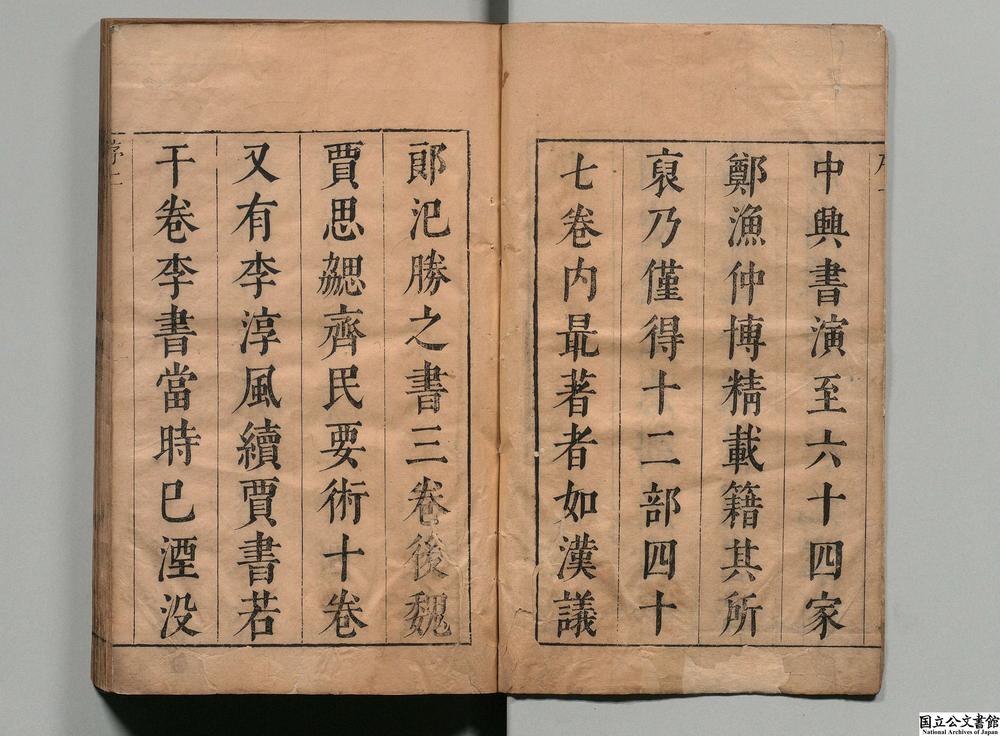 中興書演至六十四家
鄭漁仲博精載籍其所
裒乃僅得十二部四十
七卷内最著者如漢議
郎汜勝之書三卷後魏
賈思勰齊民要術十卷
又有李淳風續賈書若
干卷李書當時已湮没
序二
国立公文書館
National Archives of Japan